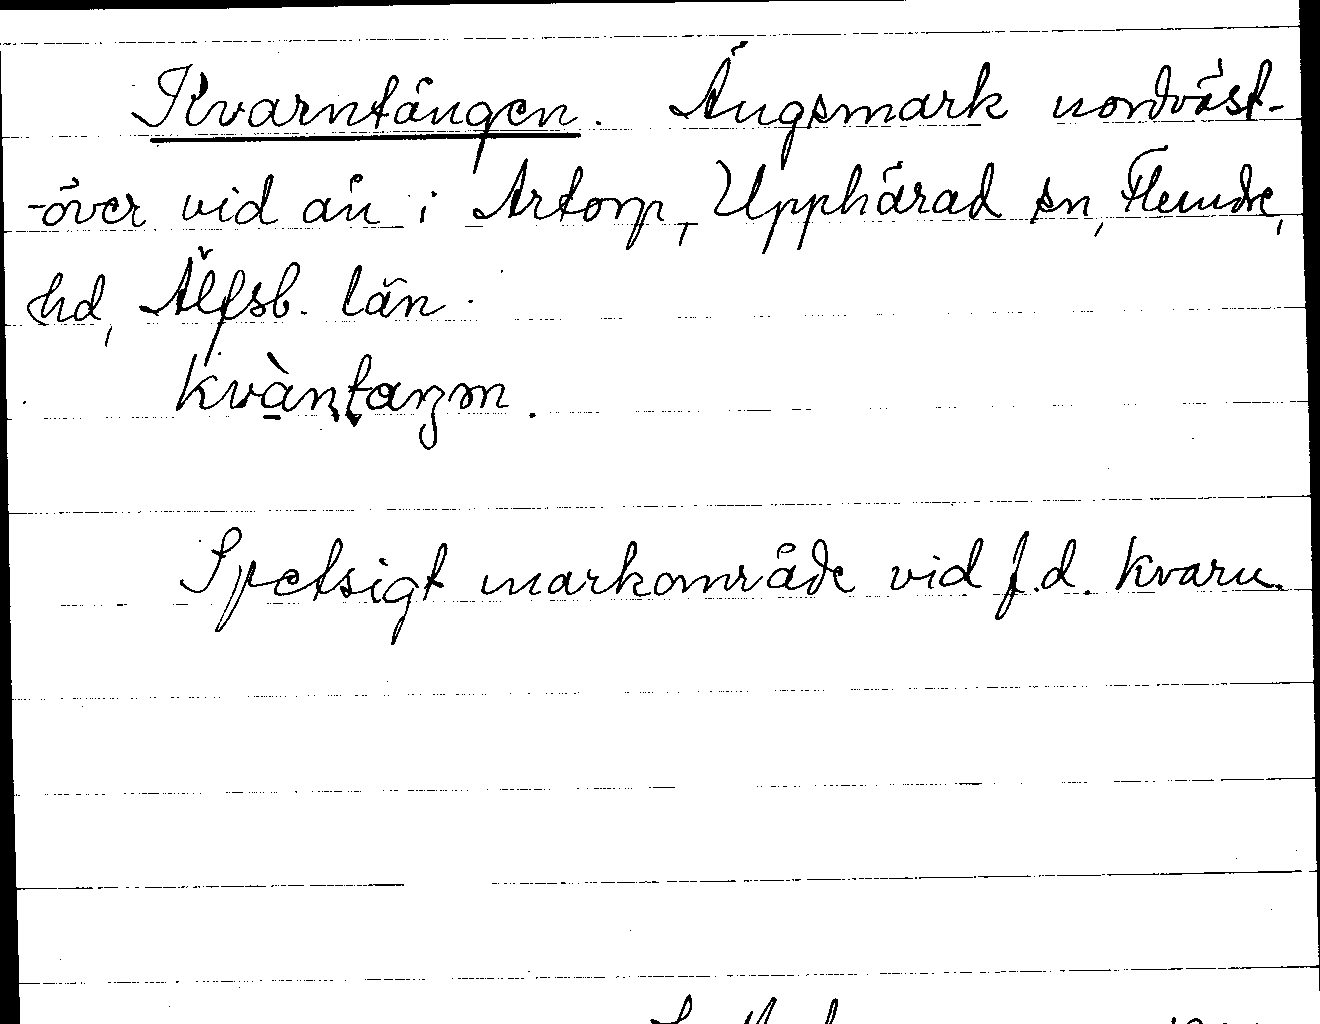 Kvarntången. Ängsmark nordväst-
-över vid ån i Artorp, Upphärad sn, Flundre,
hd, Älfsb. län.
Kvàn̥taŋən.
Spetsigt markområde vid f.d. kvarn.